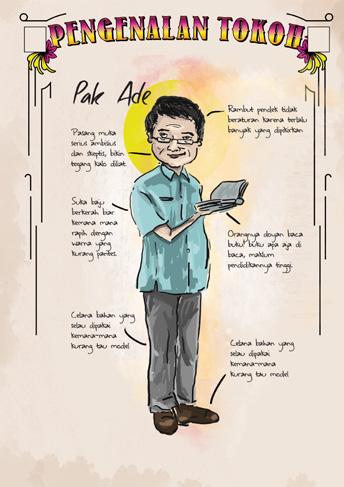 PENGENALAN TOKOH
Pak Ade
Rambut pendek tidak
beraturan karena terlalu
banyak yang dipikirkan
Pasang muka
serius ambisius
dan skeptis, bikin
tegang kalo dilihat
Suka baju
berkerah biar
kemana mana
rapih dengan
warna yang
kurang pantes.
Orangnya doyan baca
buku! buku apa aja di
baca, maklum
pendidikannya tinggi.
Celana bahan yang
selau dipakai
kemana-mana
kurang tau model
Celana bahan yang
selau dipakai
kemana-mana
kurang tau model